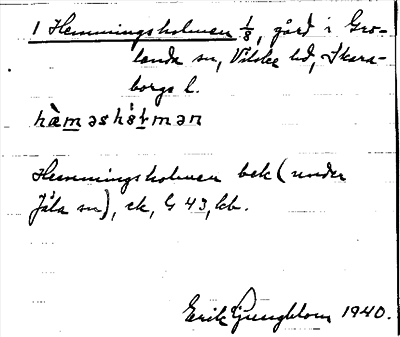 1 Hemmingsholmen 1/8, gård i Gro-
landa sn, Vilske hd, Skara-
borgs l.
hàməshɔ́lmən
Hemmingsholmen bek (under
Jäla sn), ek, G 43, kb.
Erik Ljungblom 1940.